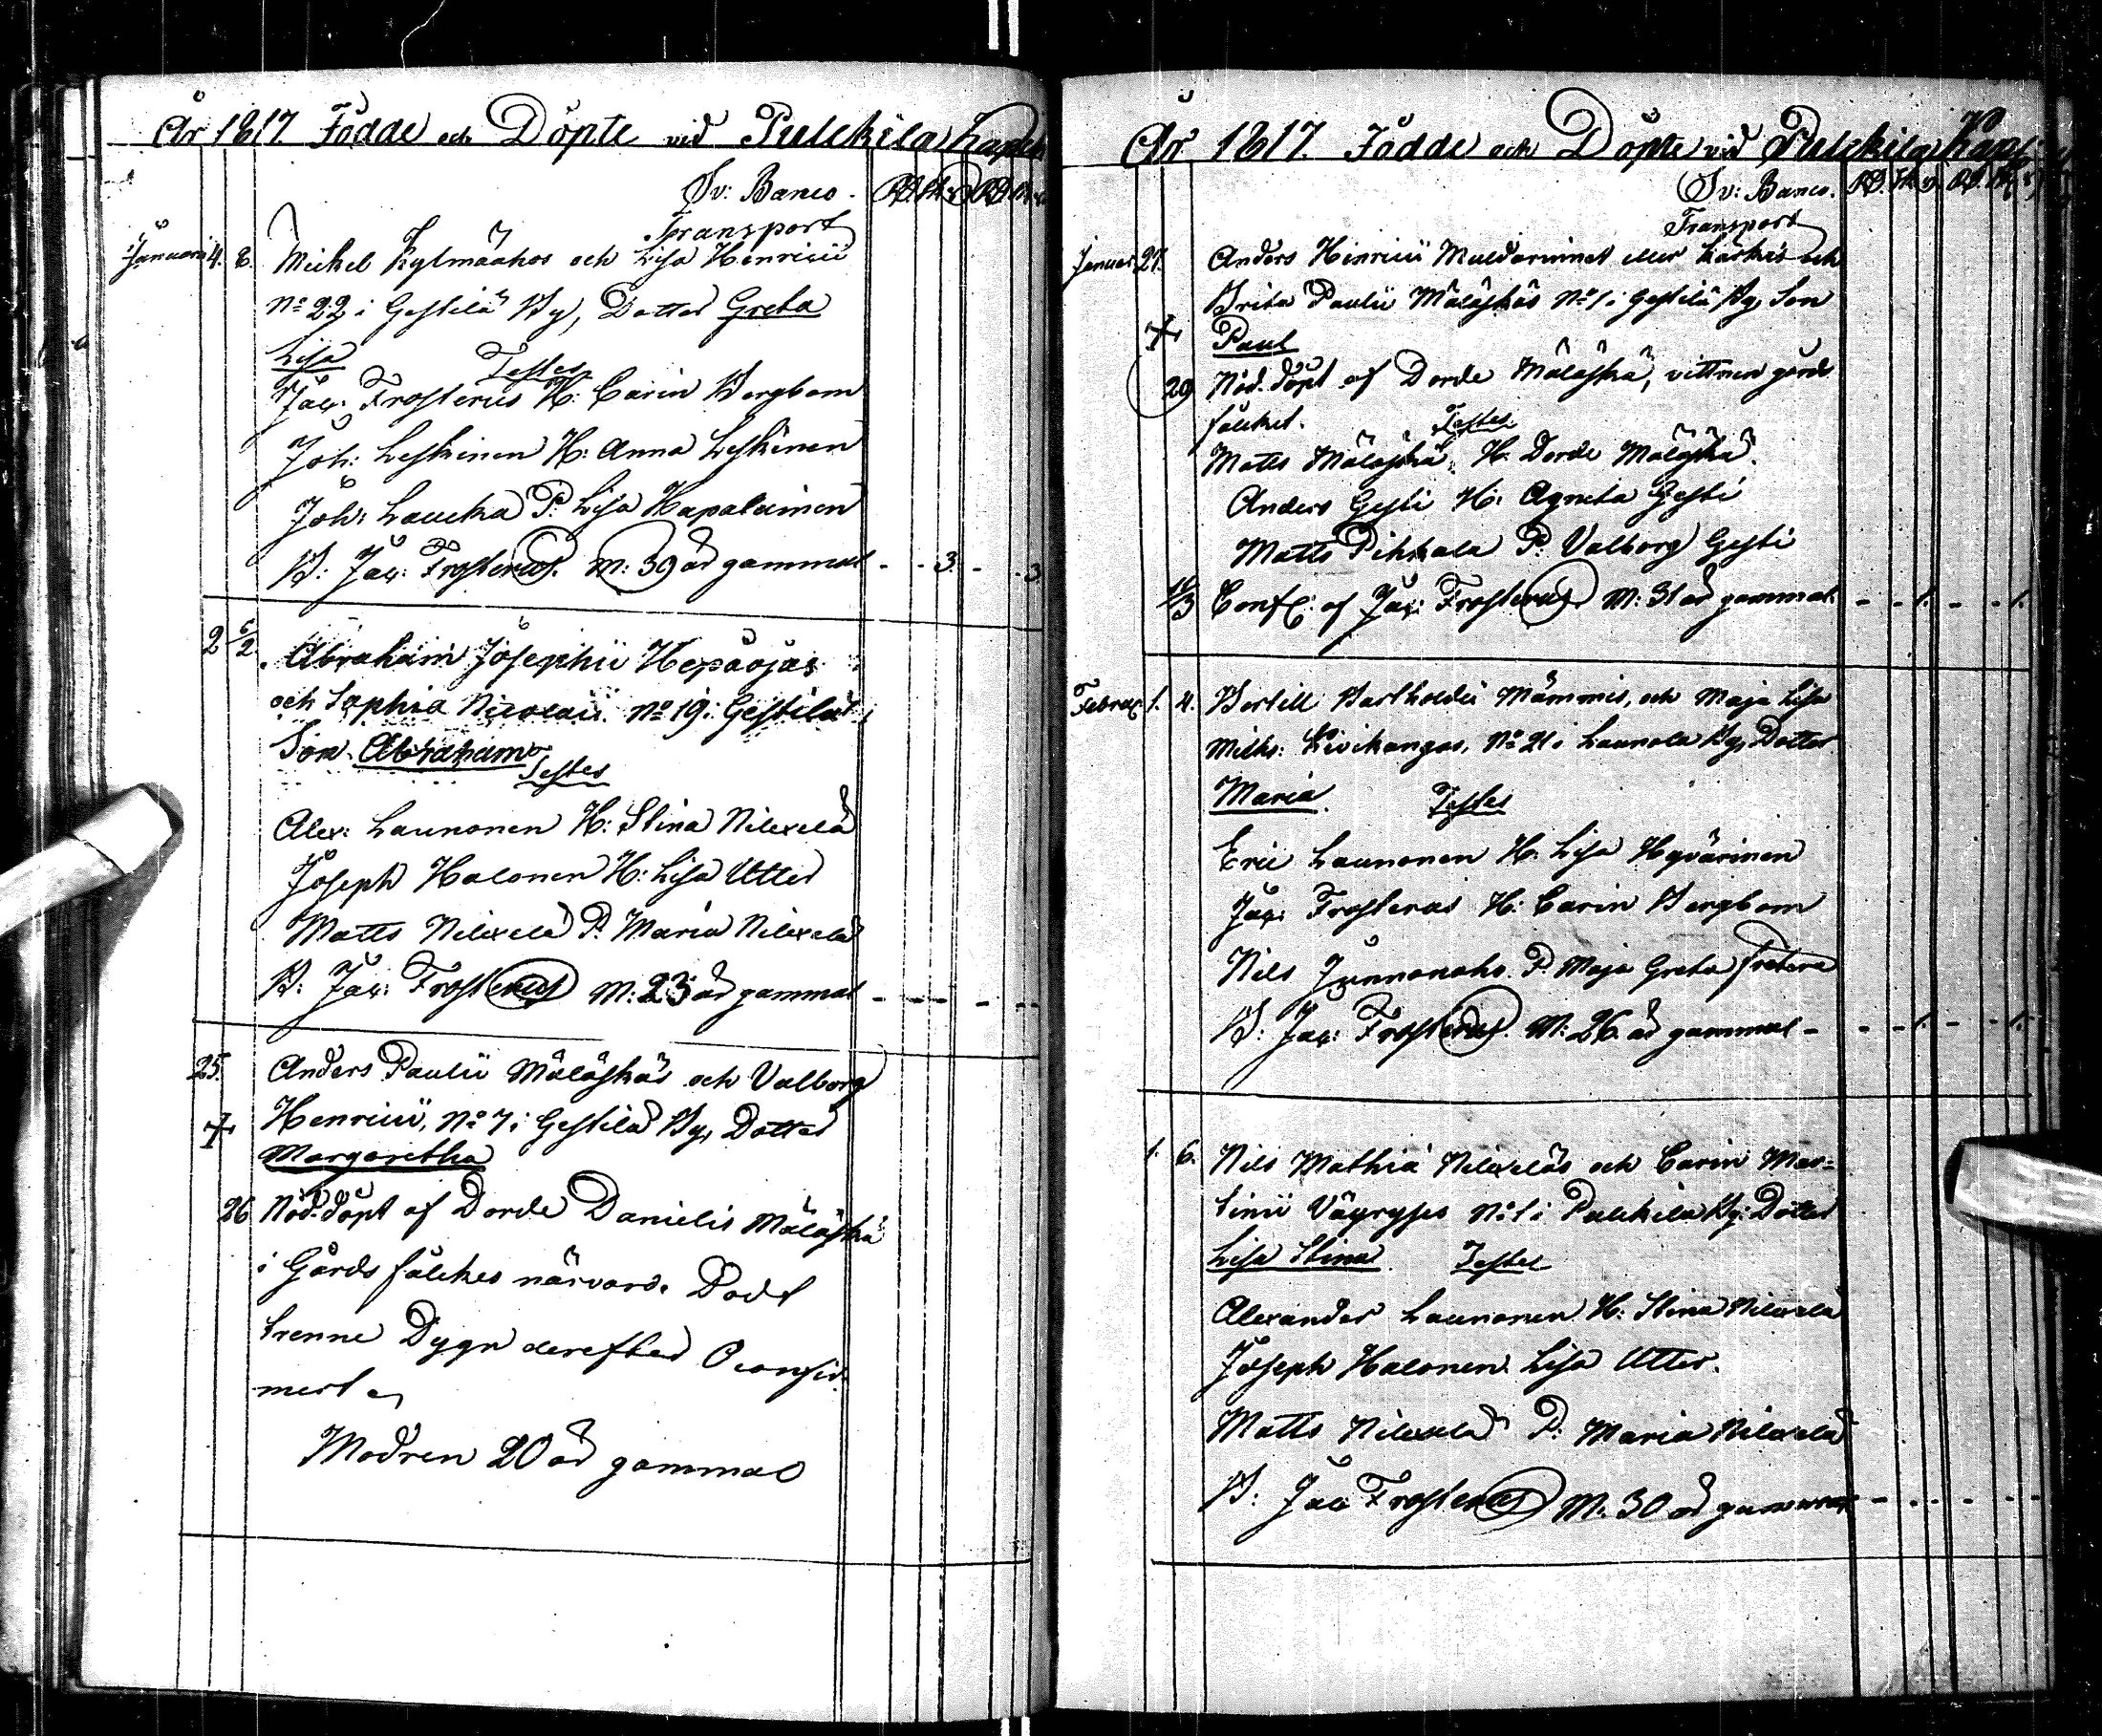 År 1817. Födde och Döpte vid Pulckila Capell
Sv: Banco. RD. sk. r. RD. sk. r.
Transport
Januari 4. 6. Mickel Kylmäahos och Lisa Henricii
No 22 i Gestilä By, Dotter Greta
Lisa Testes
Jac: Frosterus H: Carin Bergbom
Joh: Leskinen H: Anna Leskinen
Joh: Laucka P: Lisa Hapalainen
B: Jac: Frosterus. M: 39 år gammal - - 3. - - 3.
2 6/2. Abraham Josephii Hepäojas
och Sophia Nicolaii No 19 i Gestilä
Son Abraham
Testes
Alex: Launonen H: Stina Nilexelä
Joseph Halonen H: Lisa Utter
Matts Nilexelä P: Maria Nilexelä
B: Jac: Frosterus M: 23 år gammal - - - - -
25. Anders Paulii Mäläskäs och Valborg
+ Henricii, No 7 i Gestilä By, Dotter
Margaretha
26 Nöd.döpt af Dorde Danielis Mäläskä
i Gårds fålckes närvaro. Dödt
trenne Dygn derefter Oconfir
mert
Modren 20 år gammal
År 1817. Födde och Döpte vid Pulckila Capl
Sv: Banco. RD. sk. r. RD. sk. r.
Transport
Januar. 27. Anders Henricii och
Brita Paulii Mäläskäs No 1 i Gestilä By, Son
+ Paul
29 Nöd.döpt af Dorde Mäläskä, vittnen gårds
fålcket. Testes
Matts Mäläskä, H. Dorde Mäläskä.
Anders Gesti H: Agneta Gesti
Matts Pihkala P: Valborg Gesti
Conf: af Jac: Frosterus M: 31 år gammal - - 1. - - 1.
Februar. 1. 4. Bertill Bartholdii Mämmis, och Maja Lisa
Miths: Kivikangas, No 21 i Launola By, Dotter
Maria. Testes
Eric Launonen H. Lisa Hyvärinen
Jac: Frosterus H: Carin Bergbom
Nils Junnonaho P: Maja Greta
B: Jac: Frosterus. M: 26 år gammal - - - 1. - - 1.
1. 6. Nils Mathiä Nilexeläs och Carin Mar=
tinii Väyryses No 1 i Pulckila By: Dotter
Lisa Stina. Testes
Alexander Launonen H: Stina Nilexelä
Joseph Halonen. Lisa Utter.
Matts Nilexelä P: Maria Nilexelä
B: Jac Frosterus M. 30 år gammal - - - - - -